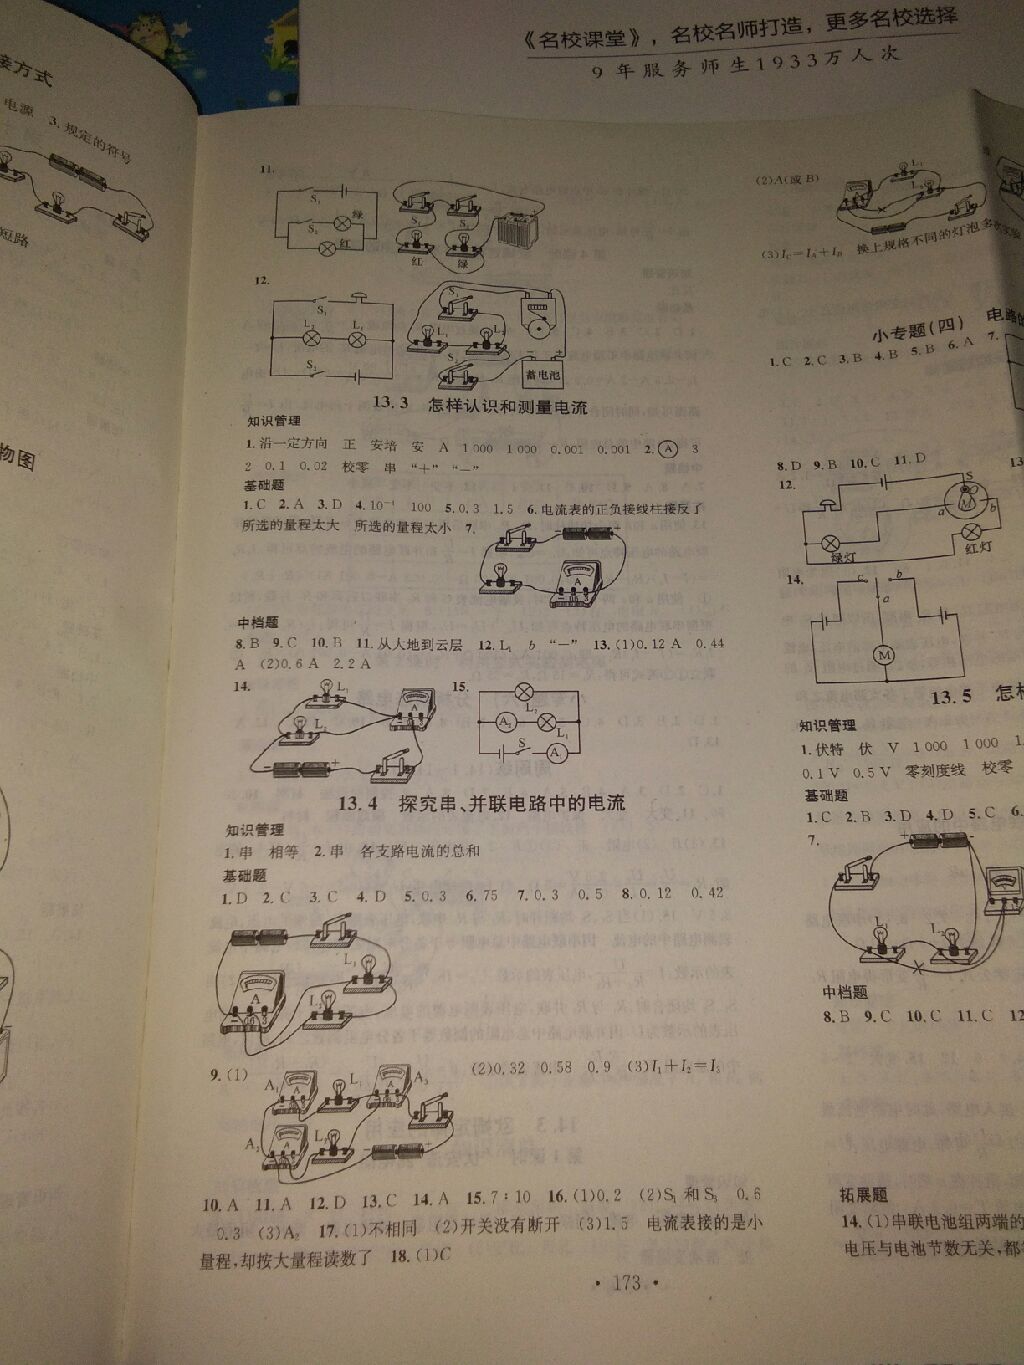 《名校课堂》，名校名师打造，更多名校选择
9年服务师生1933万人次
接方式
电源 3. 规定的符号
短路
物图
11.
S₁
S₂
绿
红
S₁ S₂
红 绿
12.
S₁
L₂ L₁
S₂
S₁
L₁ L₂
S₂
蓄电池
13.3 怎样认识和测量电流
知识管理
1. 沿一定方向 正 安培 安 A 1 000 1 000 0.001 0.001 2. Ⓐ 3
2 0.1 0.02 校零 串 “+” “−”
基础题
1. C 2. A 3. D 4. 10⁻⁴ 100 5. 0.3 1.5 6. 电流表的正负接线柱接反了
所选的量程太大 所选的量程太小 7.
中档题
8. B 9. C 10. B 11. 从大地到云层 12. L₁ b “−” 13. (1)0.12 A 0.44
A (2)0.6 A 2.2 A
14.
L₁
L₂
A
− +
15.
L₂
A₂
L₁
S
A
13.4 探究串、并联电路中的电流
知识管理
1. 串 相等 2. 串 各支路电流的总和
基础题
1. D 2. C 3. C 4. D 5. 0.3 6. 75 7. 0.3 0.5 8. 0.12 0.42
A
9. (1)
A₁ L₁ A₃
A₂ L₂
(2)0.32 0.58 0.9 (3)I₁+I₂=I₃
10. A 11. A 12. D 13. C 14. A 15. 7∶10 16. (1)0.2 (2)S₁ 和 S₃ 0.6
0.3 (3)A₂ 17. (1)不相同 (2)开关没有断开 (3)1.5 电流表接的是小
量程，却按大量程读数了 18. (1)C
• 173 •
(2)A(或 B)
L₁
L₂
(3)I_C=I_A+I_B 换上规格不同的灯泡
小专题(四) 电路
1. C 2. C 3. B 4. B 5. B 6. A 7.
8. D 9. B 10. C 11. D
12.
S
a M b
绿灯
红灯
14.
c b
a
M
13.5 怎
知识管理
1. 伏特 伏 V 1 000 1 000
0.1 V 0.5 V 零刻度线 校零
基础题
1. C 2. B 3. D 4. D 5. C
7.
+ −
L₁ L₂
中档题
8. B 9. C 10. C 11. C
拓展题
14. (1)串联电池组两端的
电压与电池节数无关，都